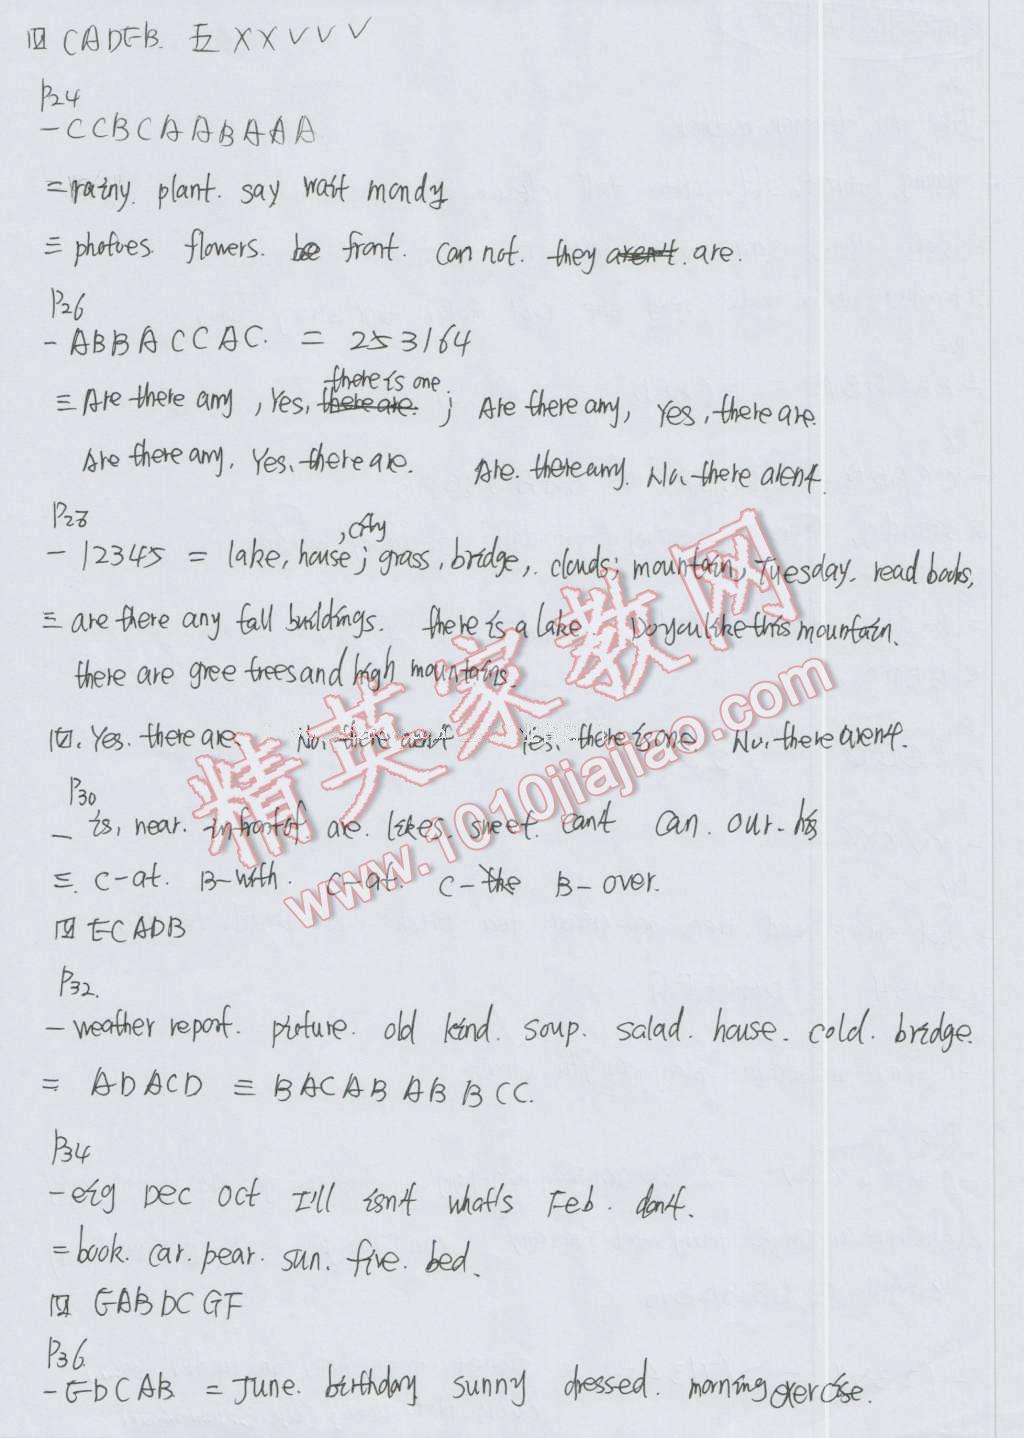 四 CADEB. 五 ××√√√
P24
一 CCBCAABAAA
二 rainy. plant. say wait mondy
三 photoes. flowers. be front. can not. they aren't. are.
P26
一 ABBACCAC. 二 253164
there is one
三 Are there any, Yes, there are. ; Are there any, Yes, there are.
Are there any. Yes, there are. Are. there any. No, there aren't.
P28
, city
一 12345 二 lake, house; grass, bridge, clouds; mountain, Tuesday. read books,
三 are there any tall buildings. there is a lake Do you like this mountain.
there are gree trees and high mountains.
四. Yes. there are. No, there aren't Yes, there is one No, there aren't.
P30
一 is, near. in front of are. likes. sweet. can't can. our - his
三. C-at. B-with. C-at. C-the B-over.
四 ECADB
P32.
一 weather report. picture. old kind. soup. salad. house. cold. bridge.
二 ADACD 三 BACABABBCC.
P34
一 eig Dec Oct I'll isn't what's Feb. don't.
二 book. car. pear. sun. five. bed.
四 EABDCGF
P36
一 EDCAB 二 June. birthday sunny dressed. morning exercise.
精英家教网
www.1010jiajiao.com